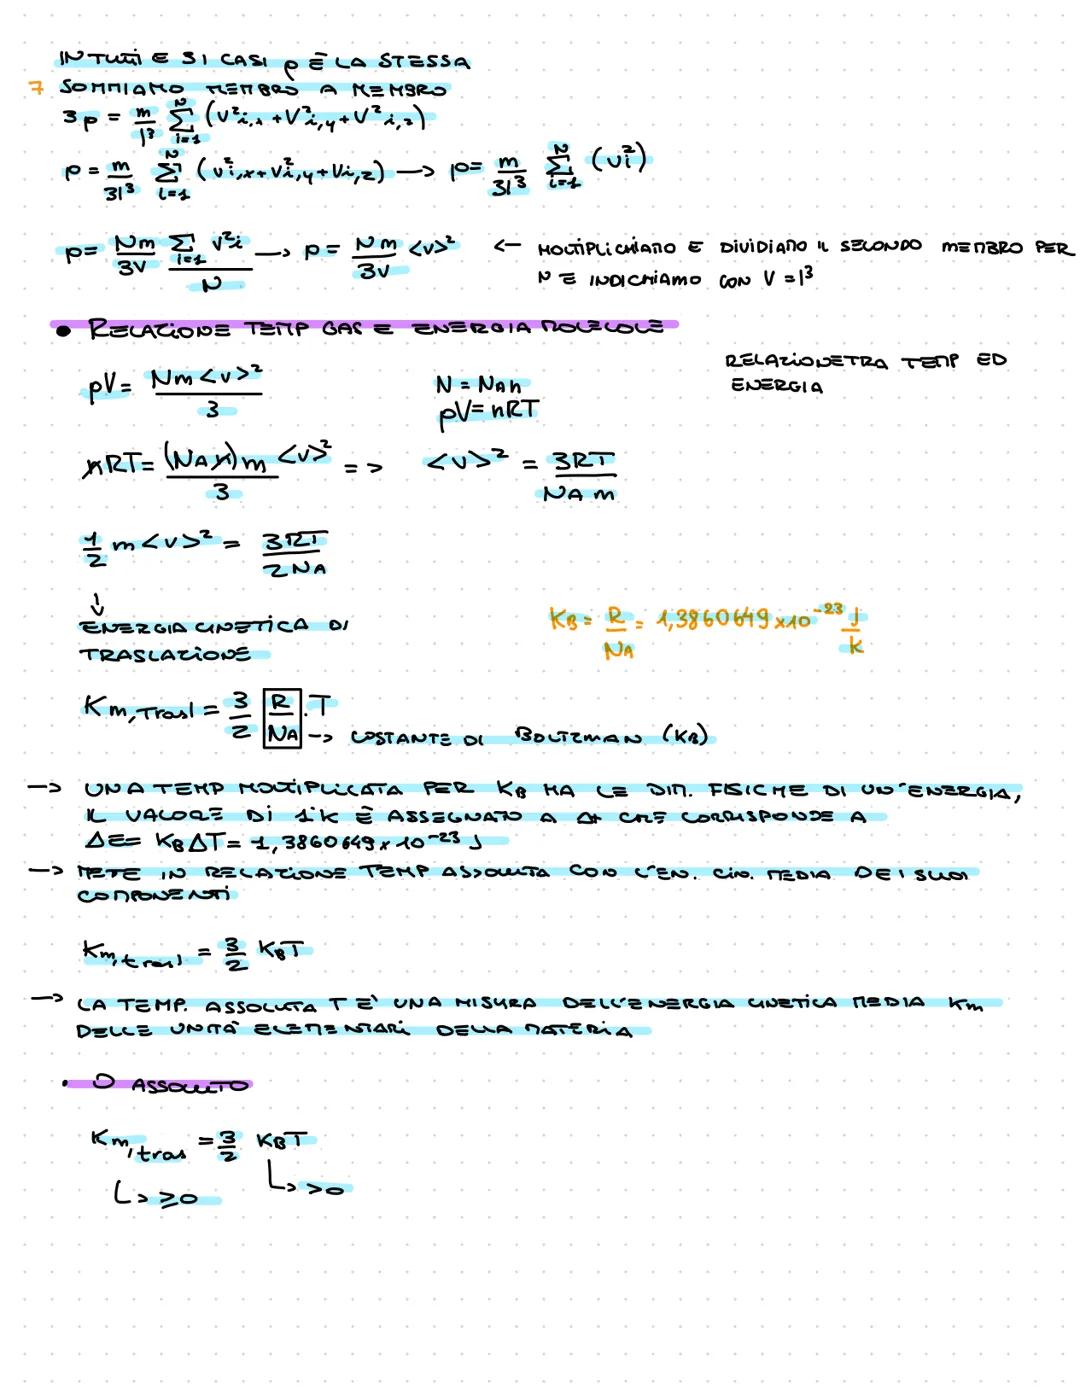 IN TUTTI E 3 I CASI p È LA STESSA
7 SOMMIAMO MEMBRO A MEMBRO
3p = m/l³ Σ_{i=1}^{N} (v²i,x + v²i,y + v²i,z)
p = m/3l³ Σ_{i=1}^{N} (v²i,x + v²i,y + vi,z) —> p = m/3l³ Σ_{i=1}^{N} (vi²)
p = Nm/3V Σ_{i=1} v²i / N —> p = Nm/3V <v>² <— MOLTIPLICHIAMO E DIVIDIAMO IL SECONDO MEMBRO PER
N E INDICHIAMO CON V = l³
• RELAZIONE TEMP GAS E ENERGIA MOLECOLE
RELAZIONE TRA TEMP ED
ENERGIA
pV = Nm<v>²/3
N = NAn
pV = nRT
nRT = (NAn)m<v>²/3 => <v>² = 3RT/NA m
1/2 m<v>² = 3RT/2NA
↓
ENERGIA CINETICA DI
TRASLAZIONE
KB = R/NA = 1,3860649 x 10⁻²³ J/K
Km,Trasl = 3/2 R/NA . T
—> COSTANTE DI BOLTZMAN (KB)
—> UNA TEMP MOLTIPLICATA PER KB HA LE DIM. FISICHE DI UN'ENERGIA,
IL VALORE DI 1K È ASSEGNATO A Δt CHE CORRISPONDE A
ΔE = KBΔT = 1,3860649 x 10⁻²³ J
—> METE IN RELAZIONE TEMP ASSOLUTA CON L'EN. CIN. MEDIA DEI SUOI
COMPONENTI
Km,trasl = 3/2 KBT
—> LA TEMP. ASSOLUTA T E' UNA MISURA DELL'ENERGIA CINETICA MEDIA Km
DELLE UNITÀ ELEMENTARI DELLA MATERIA
• 0 ASSOLUTO
Km,tras = 3/2 KBT
L> ≥0 L> >0